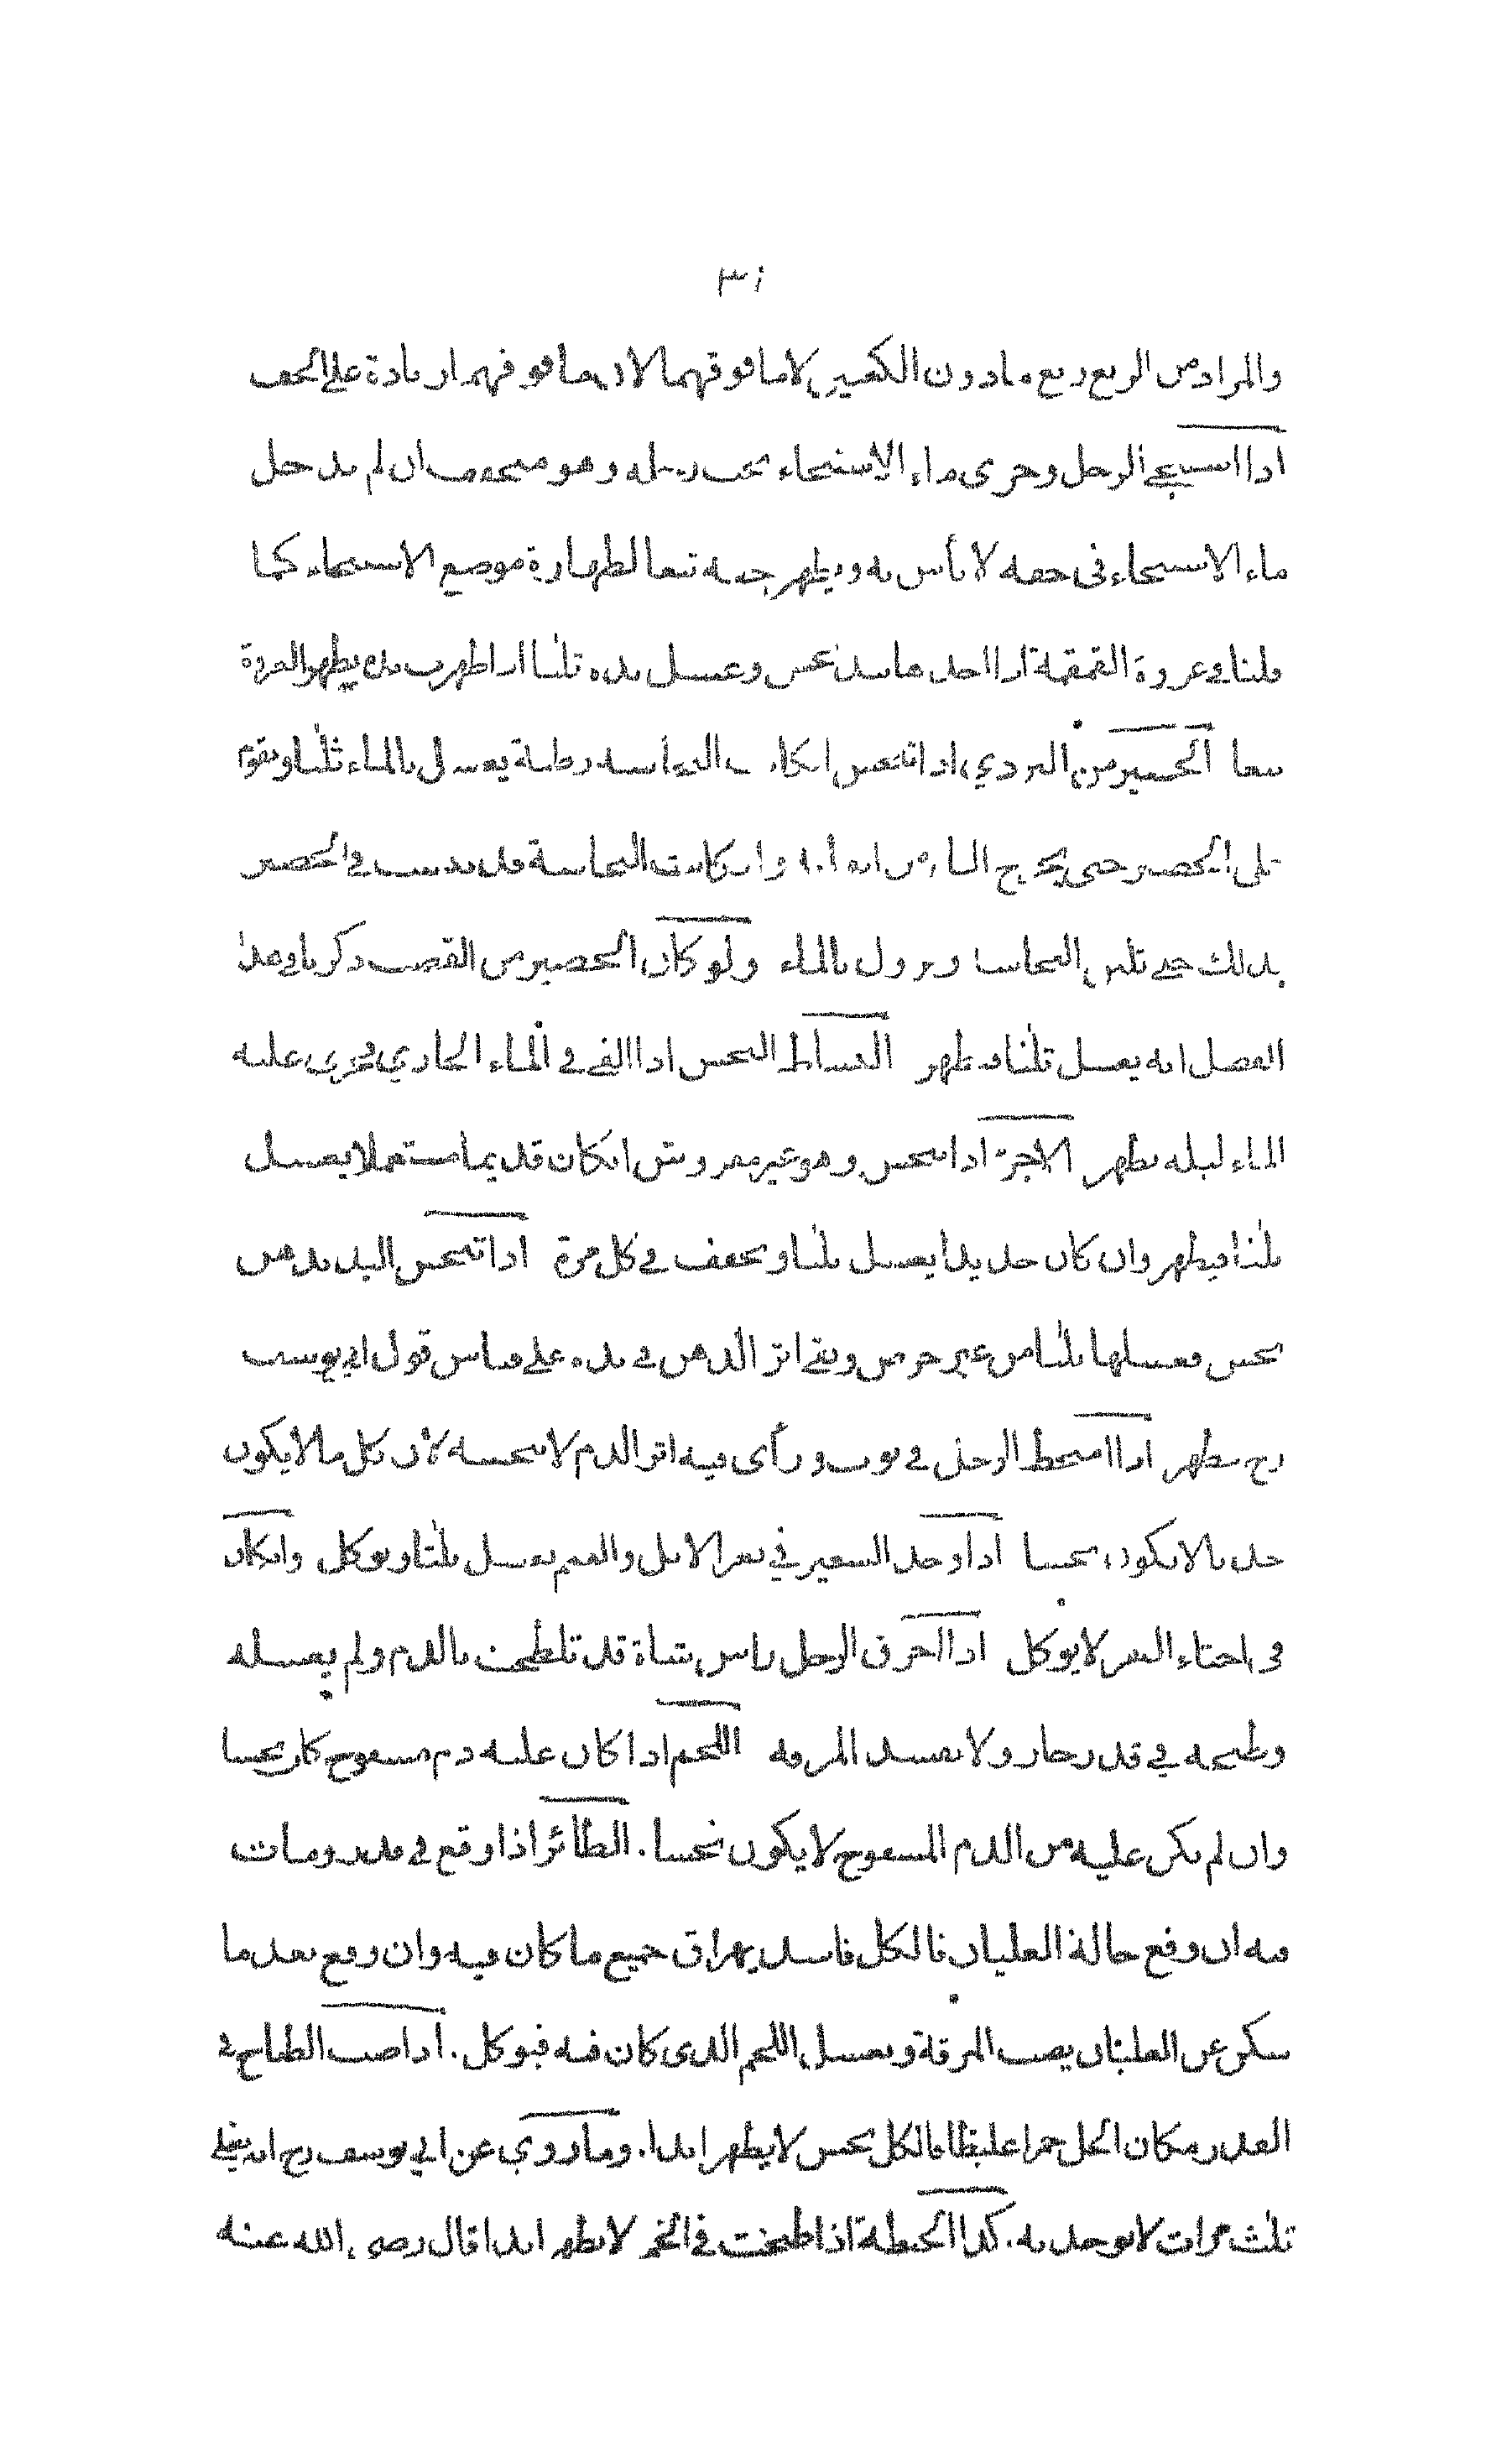 ٣٠
والمراد من الربع ربع ما دون الكعبين لا ما فوقهما لان ما فوقهما زيادة على الخف
اذا استنجى الرجل وجرى ماء الاستنجاء تحت رجله وهو متخفف ان لم يدخل
ماء الاستنجاء في خفه لا بأس به ويطهر خفه تبعا لطهارة موضع الاستنجاء كما
قلنا في عروة القمقمة اذا اخدها بيد نجس وغسل يده ثلثا اذا طهرت يده يطهر العروة
تبعا الحصير من البردي اذا تنجس انكانت النجاسة رطبة يغسل بالماء ثلثا ويقوم
على الحصير حتى يخرج الماء من اثقابه وانكانت النجاسة قد يبست في الحصير
يدلك حتى تلين النجاسة ويزول بالماء ولو كان الحصير من القصب ذكرنا في هذا
الفصل انه يغسل ثلثا ويطهر البساط النجس اذا القي في الماء الجاري فجرى عليه
الماء ليله يطهر الاجرة اذا تنجس وهو غير مفروش انكان قديما مستعملا يغسل
ثلثا فيطهر وان كان حديدا يغسل ثلثا ويجفف في كل مرة اذا تنجس اليد بدهن
نجس فغسلها ثلثا من غير حرض وبقي اثر الدهن في يده على قياس قول ابي يوسف
رح يطهر اذا امتخط الرجل في ثوب ورأى فيه اثر الدم لا ينجسه لان كل ما لا يكون
حدثا لا يكون نجسا اذا وجد الشعير في بعر الابل والغنم يغسل ثلثا ويوكل وانكان
في اخثاء البقر لا يوكل اذا احرق الرجل راس شاة قد تلطخت بالدم ولم يغسله
وطبخه في قدر جاز ولا يفسد المرقة اللحم اذا كان عليه دم مسفوح كان نجسا
وان لم يكن عليه من الدم المسفوح لا يكون نجسا. الطائر اذا وقع في قدر ومات
فيه ان وقع حالة الغليان فالكل فاسد يهراق جميع ما كان فيه وان وقع بعد ما
سكن عن الغليان يصب المرقة ويغسل اللحم الذي كان فيه فيوكل. اذا صب الطباخ في
القدر مكان الخل خمرا غليظا فالكل نجس لا يطهر ابدا. وما روي عن ابي يوسف رح انه يغلى
ثلث مرات لا يوخذ به. كذا الحنطة اذا طبخت في الخمر لا يطهر ابدا قال رضى الله عنه